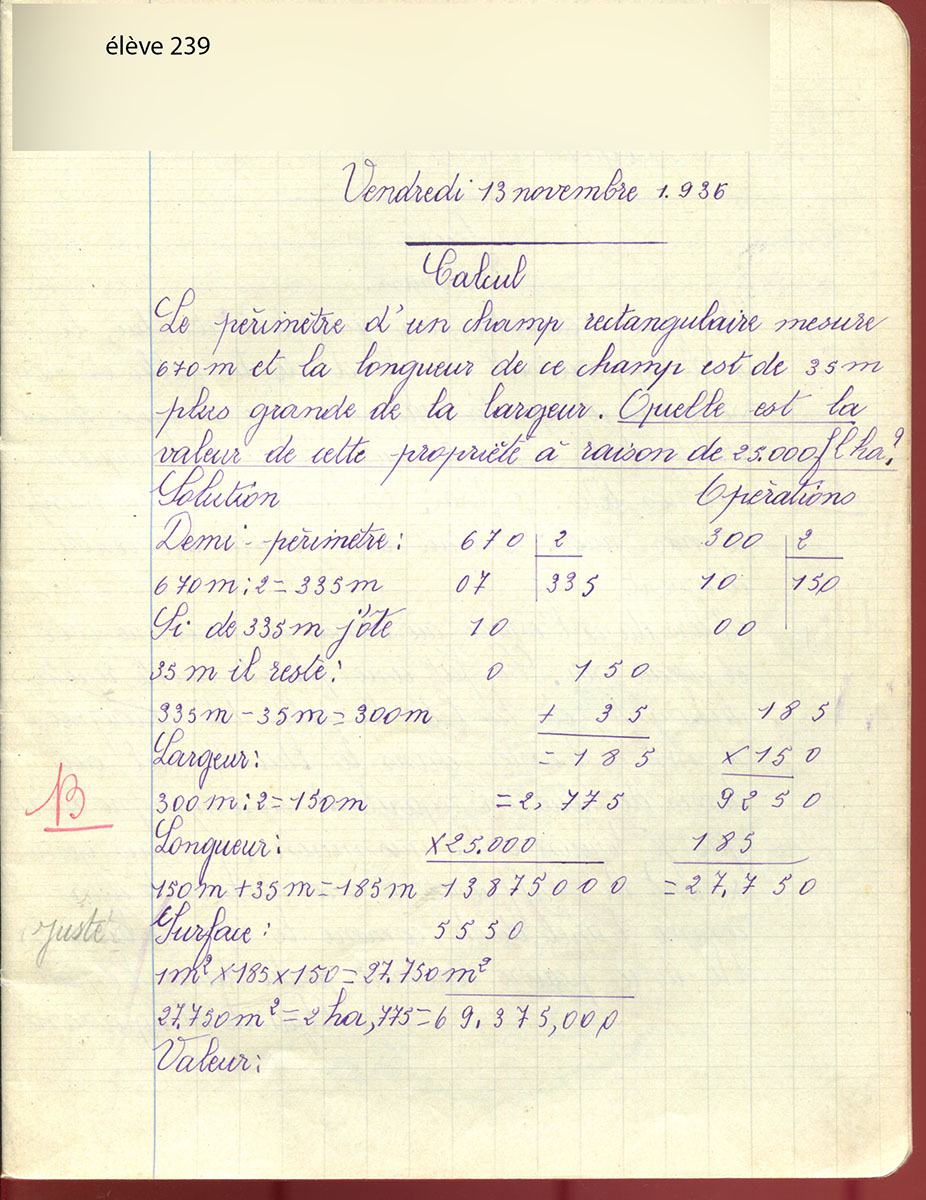 élève 239
Vendredi 13 novembre 1.936
Calcul
Le périmètre d'un champ rectangulaire mesure
670m et la longueur de ce champ est de 35m
plus grande de la largeur. Quelle est la
valeur de cette propriété à raison de 25.000f l ha?
Solution Opérations
Demi-périmètre: 670 2 300 2
670m:2=335m 07 335 10 150
Si de 335m j'ôte 10 00
35m il reste: 0 150
335m-35m=300m + 35 185
Largeur: =185 ×150
B
300m:2=150m =2,775 9250
Longueur: ×25.000 185
150m+35m=185m 13875000 =27.750
juste
Surface: 5550
1m²×185×150=27.750m²
27.750m²=2ha,775=69.375,000
Valeur: